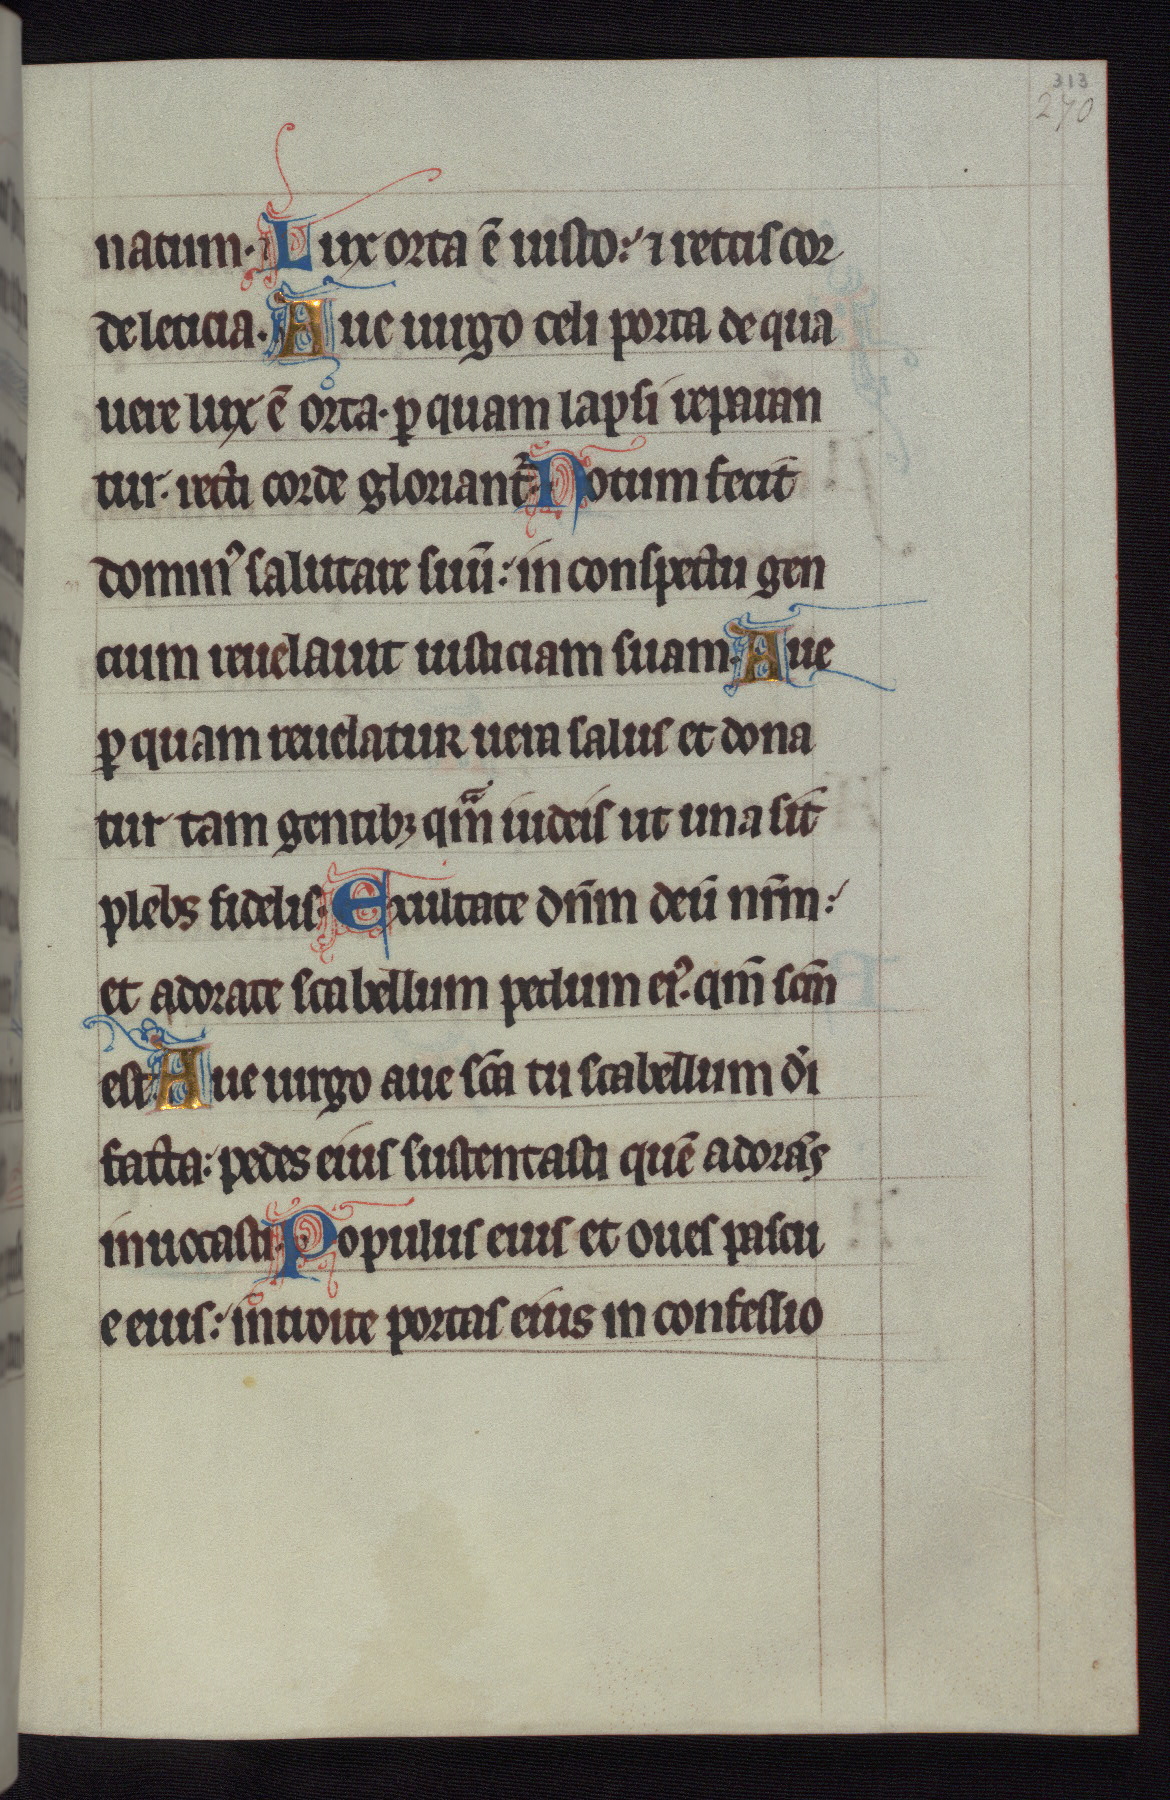 313
270
natum. Lux orta ē iusto: ⁊ rectis cor
de leticia. Aue uirgo celi porta de qua
uere lux ē orta. ꝑ quam lapsi reparan
tur. recti corde gloriant᷑. Notum fecit
dominꝰ salutare suū: in conspectu gen
cium reuelauit iusticiam suam. Aue
ꝑ quam reuelatur uera salus et dona
tur tam gentibꝫ qᵃm iudeis ut una sit
plebs fidelis. Exultate dn̄m deū nr̄m:
et adorate scabellum pedum eiꝰ. qm̄ scm̄
est. Aue uirgo aue sc̄a tu scabellum dī
facta: pedes eius sustentasti quē adorās
inuocasti. Populus eius et oues pascu
e eius: introite portas eius in confessio